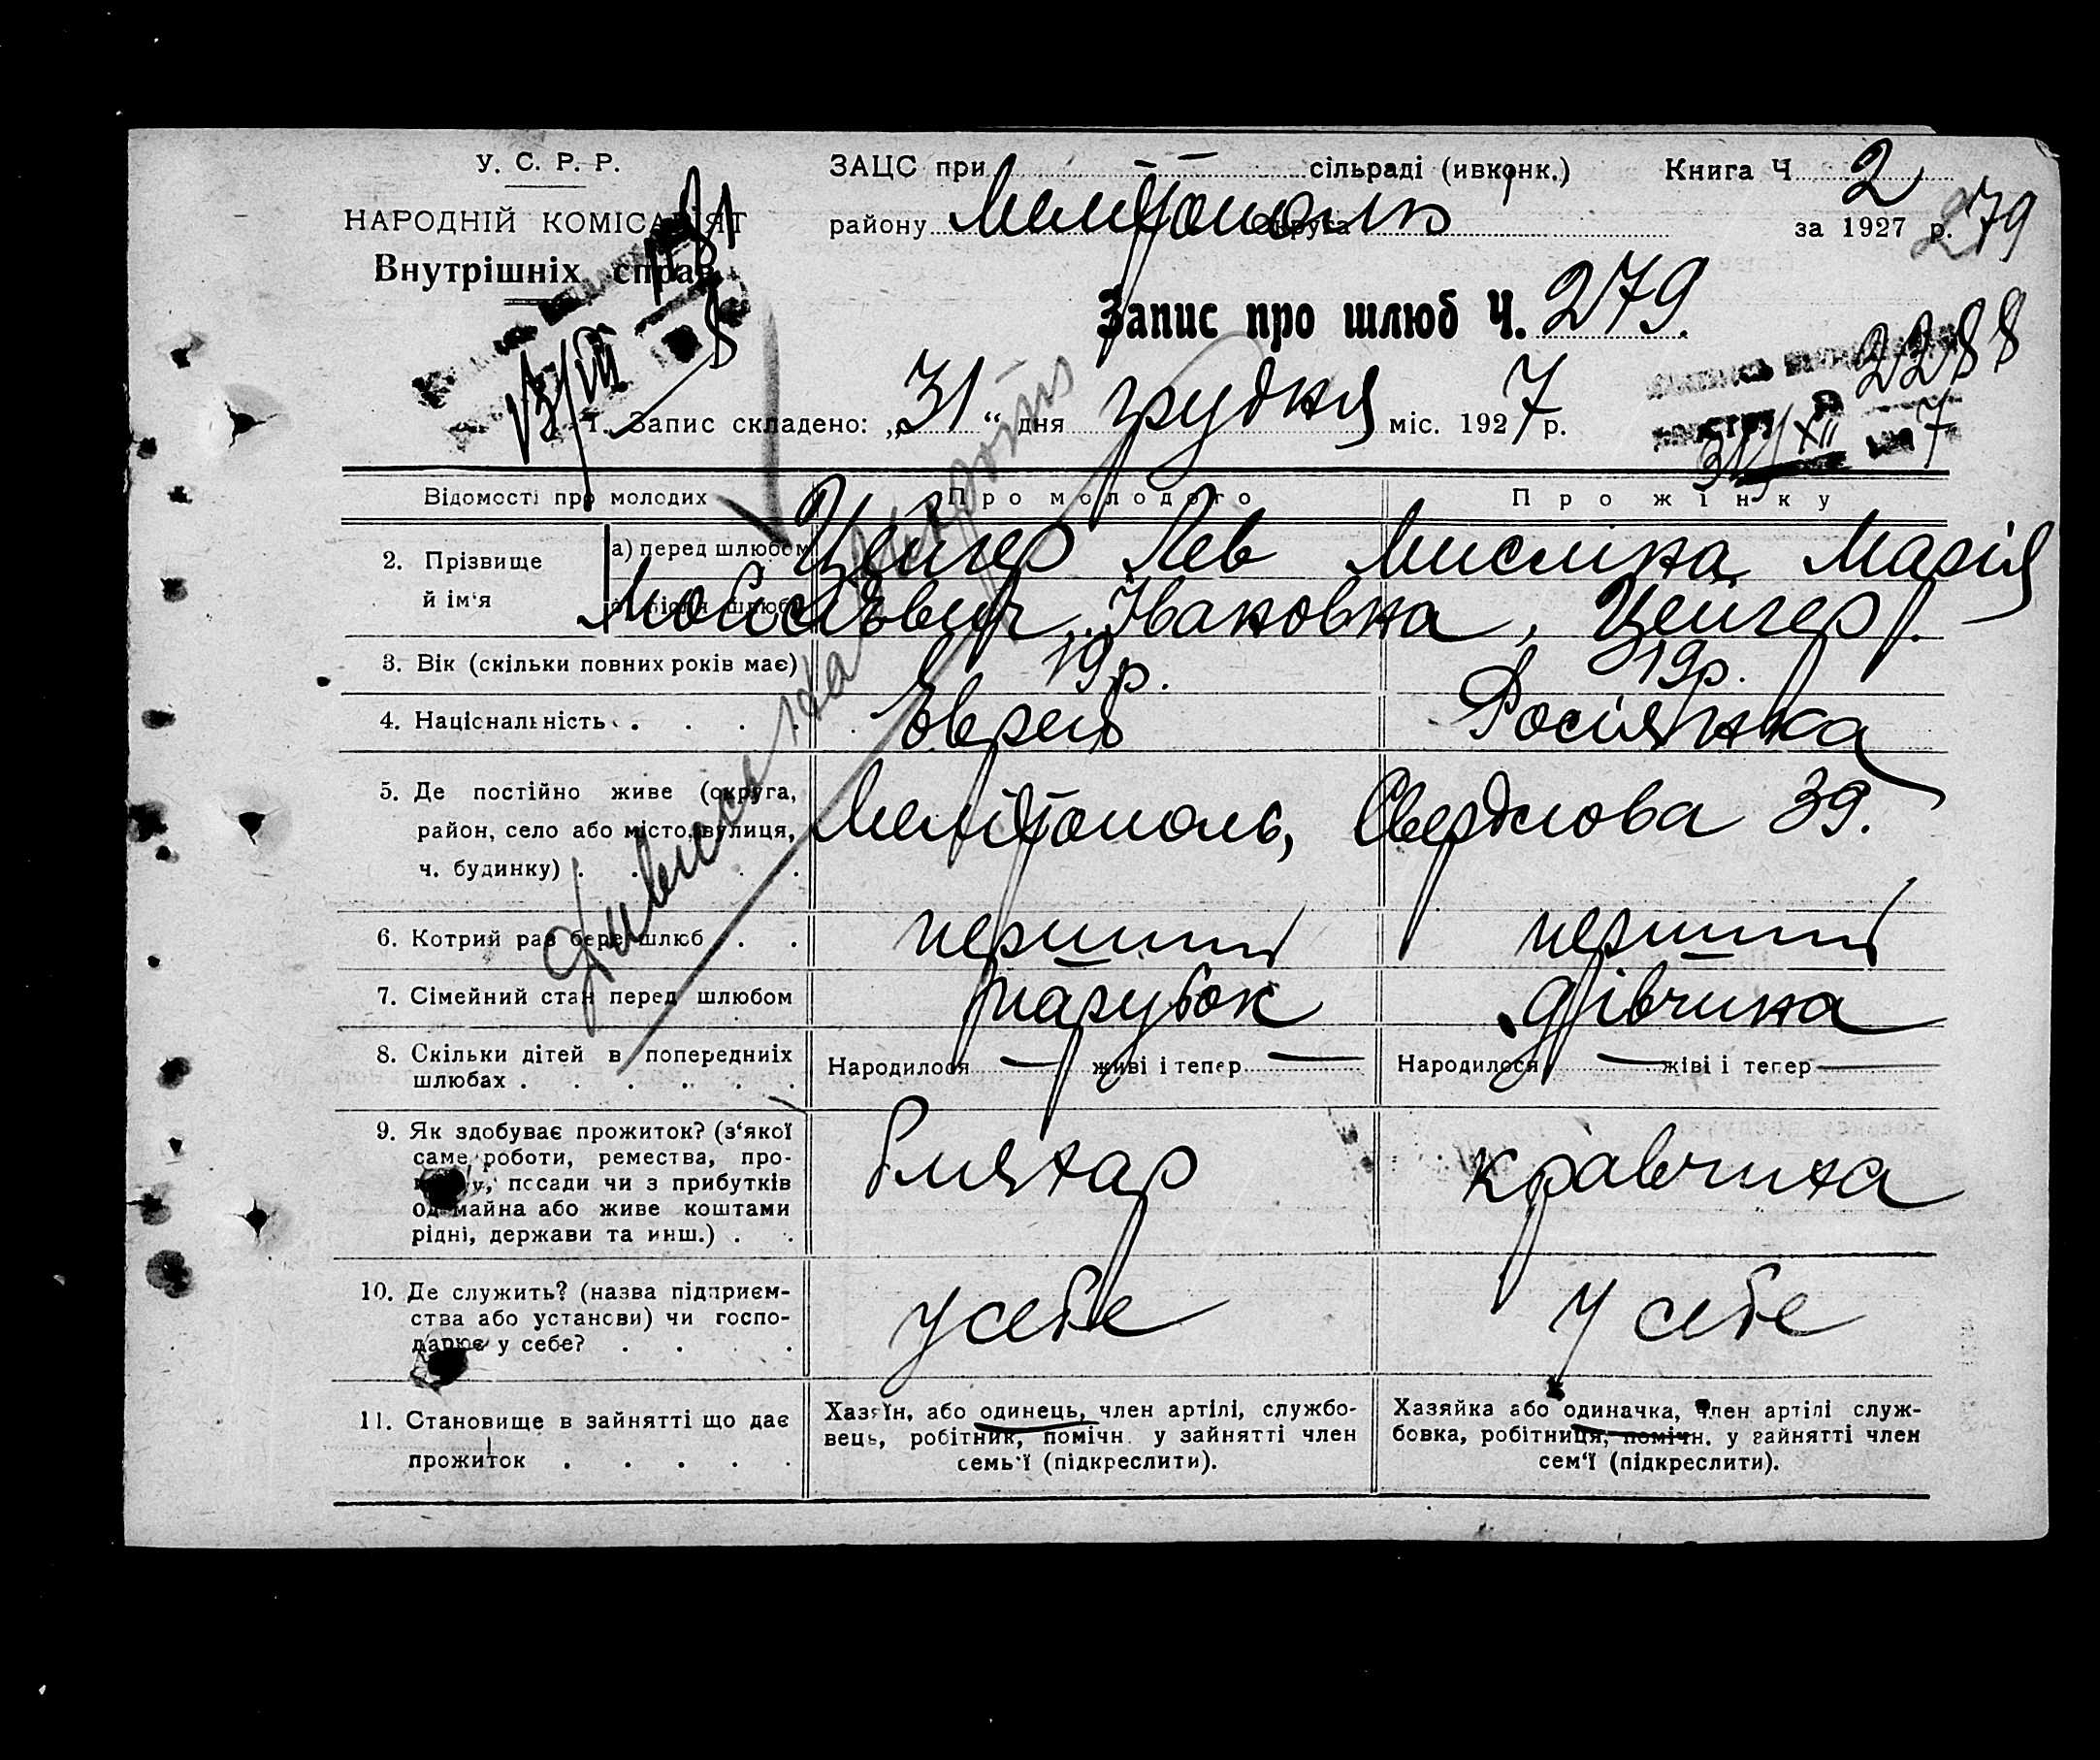 У. С. Р. Р.
НАРОДНІЙ КОМІСАРІЯТ
Внутрішніх справ
ЗАЦС при сільраді (ивконк.) Книга Ч 2
району Мелітополь округа за 1927 р. 279
Запис про шлюб Ч. 279.
2288
31/XII 7
1. Запис складено: „31“ дня грудня міс. 1927 р.
Відомості про молодих Про молодого Про жінку
2. Прізвище й ім‘я
а) перед шлюбом Цейгер Лев Мисліна Марія
Мойсієвич, Івановна, Цейгер.
3. Вік (скільки повних років має) 19 р. 19 р.
4. Національність . . . Єврей Росіянка
5. Де постійно живе (округа,
район, село або місто, вулиця,
ч. будинку) . . . .
Мелітополь, Свердлова 39.
6. Котрий раз бере шлюб . . перший перший
7. Сімейний стан перед шлюбом парубок дівчина
8. Скільки дітей в попередниіх
шлюбах . . . . . .
Народилося — живі і тепер — Народилося — жіві і тепер —
9. Як здобуває прожиток? (з‘якої
саме роботи, ремества, про-
посади чи з прибутків
од майна або живе коштами
рідні, держави та инш.) . .
бляхар кравчиха
10. Де служить? (назва підприєм-
ства або установи) чи госпо-
дарює у себе? . . . .
у себе у себе
11. Становище в зайнятті що дає
прожиток . . . . .
Хазяїн, або одинець, член артілі, службо-
вець, робітник, помічн. у зайнятті член
семь‘ї (підкреслити).
Хазяйка або одиначка, член артілі служ-
бовка, робітниця, помічн. у зайнятті член
сем‘ї (підкреслити).